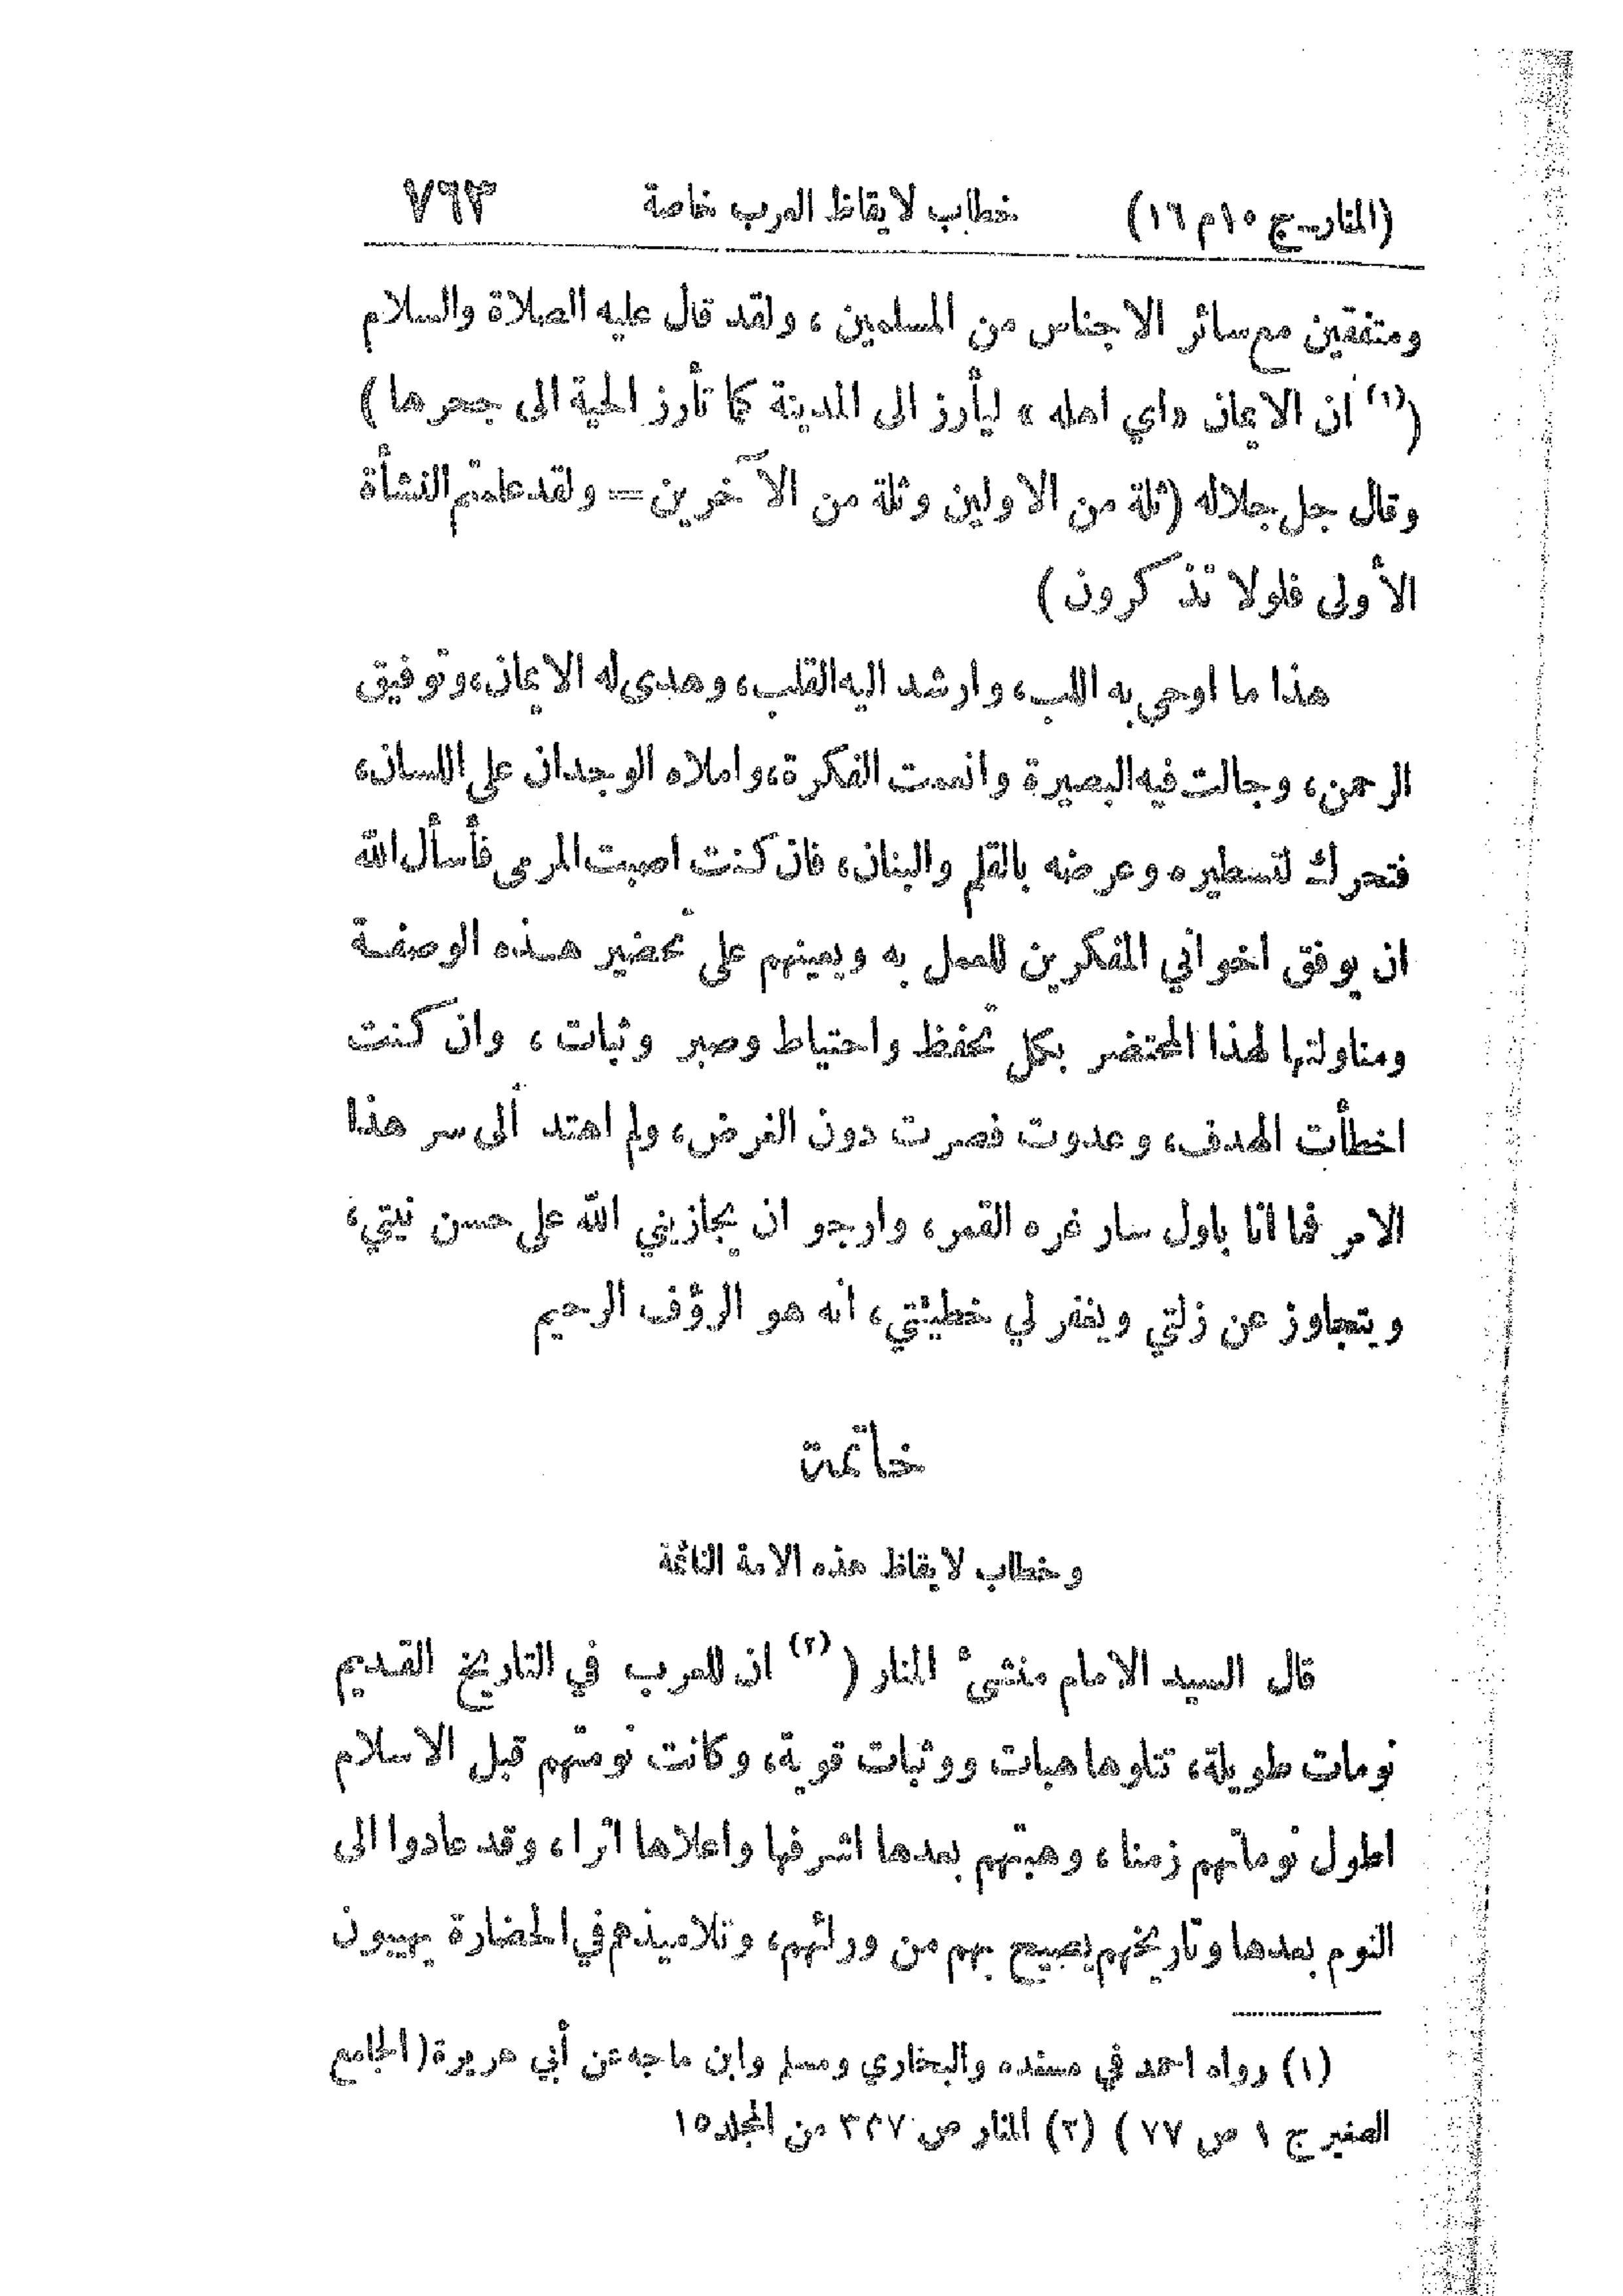 (المنار ـ ج ١٠ م ١٦) خطاب لايقاظ العرب خاصة ٧٦٣
ومتفقين مع سائر الاجناس من المسلمين ، ولقد قال عليه الصلاة والسلام
(⁽١⁾ ان الايمان «اي اهله» ليأرز الى المدينة كما تأرز الحية الى جحرها )
وقال جل جلاله (ثلة من الاولين وثلة من الآخرين = ولقد علمتم النشأة
الأولى فلولا تذكرون )
هذا ما اوحي به اللب، وارشد اليه القلب، وهدى له الايمان، وتوفيق
الرحمن، وجالت فيه البصيرة وانعمت الفكرة، واملاه الوجدان على اللسان،
فتحرك لتسطيره وعرضه بالقلم والبنان، فان كنت اصبت المرمى فأسأل الله
ان يوفق اخواني المفكرين للعمل به ويعينهم على تحضير هذه الوصفة
ومناولتها لهذا المحتضر بكل تحفظ واحتياط وصبر وثبات ، وان كنت
اخطأت الهدف، وعدوت فصرت دون الغرض، ولم اهتد ألى سر هذا
الامر فما انا باول سار غره القمر، وارجو ان يجازيني الله على حسن نيتي،
ويتجاوز عن زلتي ويغفر لي خطيئتي، انه هو الرؤف الرحيم
خاتمة
وخطاب لايقاظ هذه الامة النائمة
قال السيد الامام منشئ المنار (⁽٢⁾ ان للعرب في التاريخ القديم
نومات طويلة، تتلوها هبات ووثبات قوية، وكانت نومتهم قبل الاسلام
اطول نوماتهم زمنا ، وهبتهم بعدها اشرفها واعلاها اثرا ، وقد عادوا الى
النوم بعدها وتاريخهم يصيح بهم من ورائهم، وتلاميذهم في الحضارة يهيبون
(١) رواه احمد في مسنده والبخاري ومسلم وابن ماجه عن أبي هريرة (الجامع
الصغير ج ١ ص ٧٧ ) (٢) المنار ص ٣٢٧ من المجلد ١٥